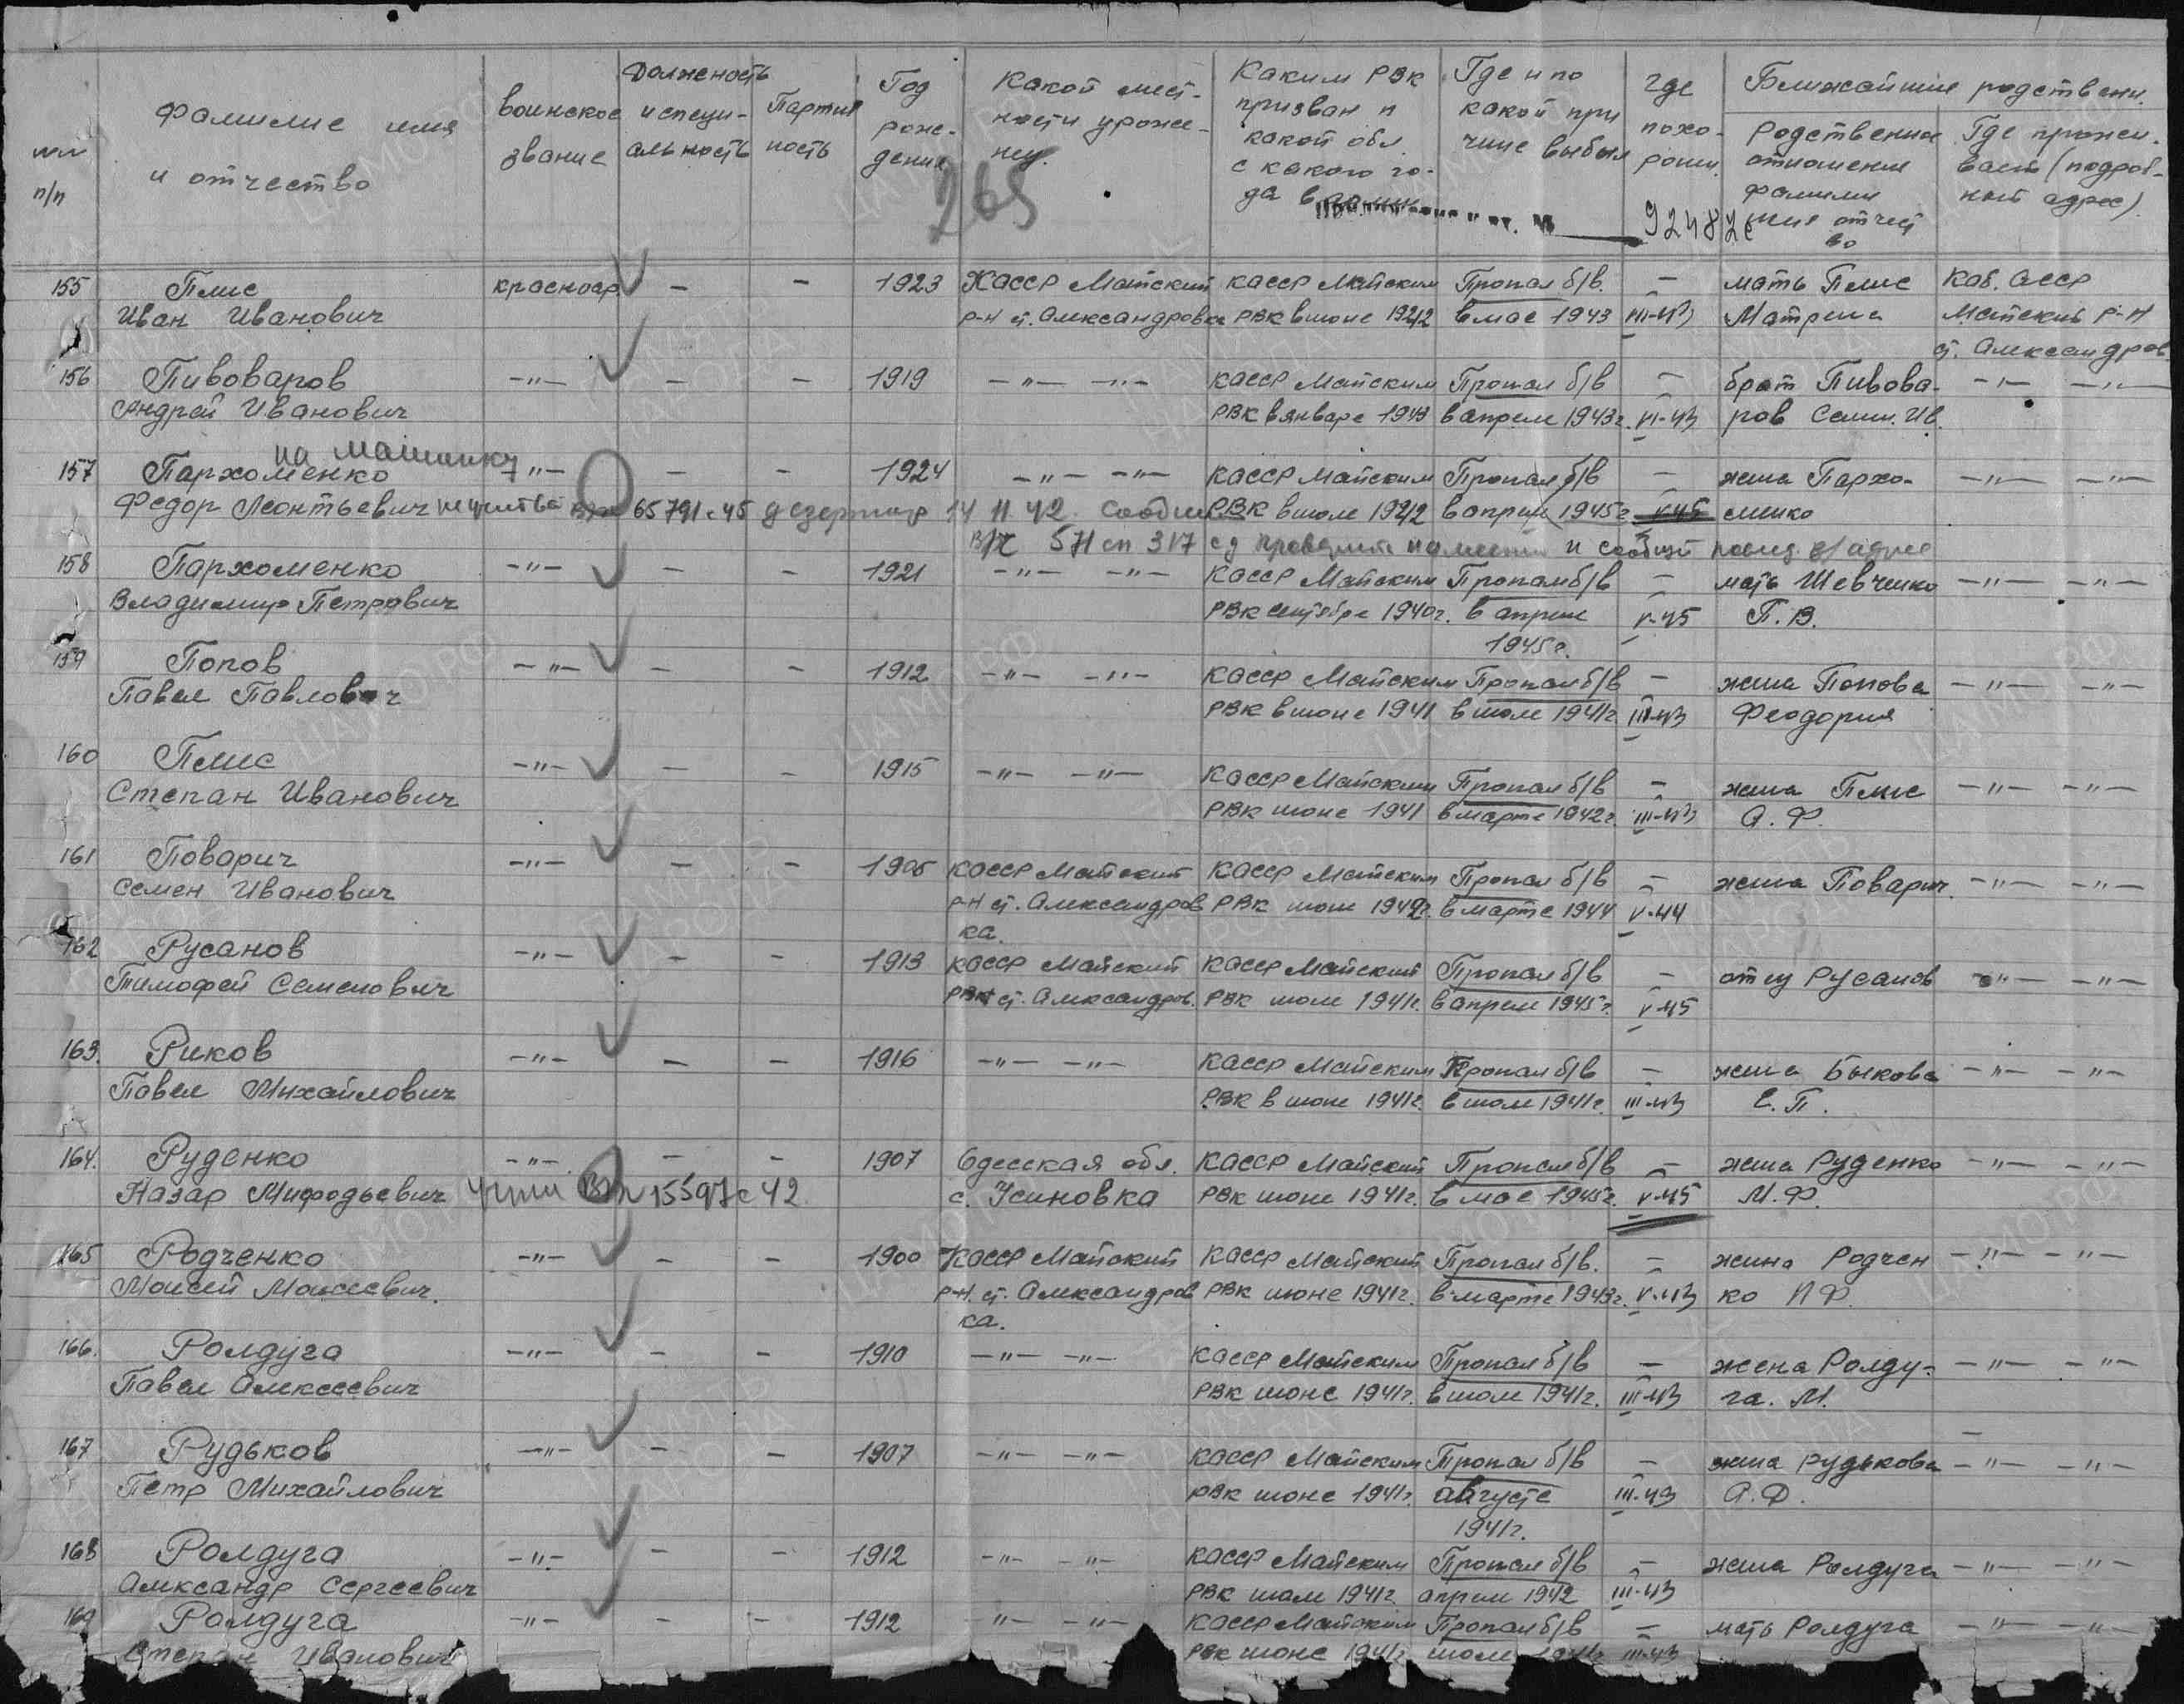 №№ п/п
Фамилие имя и отчество
воинское звание
Должность и специальность
Партийность
Год рождения
Какой местности уроженец.
Каким РВК призван и какой обл. с какого года в
Где и по какой причине выбыл
где похорон.
Ближайшие родствени.
Родственное отношение фамилия имя отчество
Где прожив. вает (подроб-ный адрес).
265
92482с
155 Плис красноар. — — 1923 КАССР Майский КАССР Майским Пропал б/в. — мать Плис Каб. АССР
Иван Иванович р-н ст. Александровка РВК в июне 1942 в мае 1943 III-43 Матрена Майский р-н
ст. Александров.
156 Пивоваров —"— — — 1919 —"— —"— КАССР Майским Пропал б/в — брат Пивова- —"— —"—
Андрей Иванович РВК в январе 1943 в апреле 1943г. VI-43 ров Семен. Ив.
на машинку
157 Пархоменко —"— — — 1924 —"— —"— КАССР Майским Пропал б/в — жена Пархо- —"— —"—
Федор Леонтьевич 65791с45 дезертир 14 11 42. РВК в июле 1942 в апреле 1945г V-45 менко
571 сп 317 сд и
158 Пархоменко —"— — — 1921 —"— —"— КАССР Майским Пропал б/в — мать Шевченко —"— —"—
Владимир Петрович РВК сентябре 1940г. в апреле V-45 П.В.
1945г.
159 Попов —"— — — 1912 —"— —"— КАССР Майским Пропал б/в — жена Попова —"— —"—
Павел Павлович РВК в июне 1941 в июле 1941г III-43 Феодория
160 Плис —"— — — 1915 —"— —"— КАССР Майским Пропал б/в — жена Плис —"— —"—
Степан Иванович РВК июне 1941 в марте 1942г. III-43 А.Ф.
161 Поварич —"— — — 1905 КАССР Майский КАССР Майским Пропал б/в — жена Поварич —"— —"—
Семен Иванович р-н ст. Александров РВК июле 1942г. в марте 1944 V-44
ка.
162 Русанов —"— — — 1913 КАССР Майский КАССР Майский Пропал б/в — отец Русанов —"— —"—
Тимофей Семенович ст. Александров. РВК июле 1941г. в апреле 1945г. V-45
163. Риков —"— — — 1916 —"— —"— КАССР Майским Пропал б/в — жена Быкова —"— —"—
Павел Михайлович РВК в июне 1941г. в июле 1941г. III-43 Е.П.
164. Руденко —"— — — 1907 Одесская обл. КАССР Майский Пропал б/в — жена Руденко —"— —"—
Назар Мифодьевич 15597с42 с. Усиновка РВК июне 1941г. в мае 1945г. V-45 М.Ф.
165 Родченко —"— — — 1900 КАССР Майский КАССР Майский Пропал б/в. — жена Родчен —"— —"—
Моисей Моисеевич. р-н. ст. Александров РВК июне 1941г. в марте 1943г. V-43 ко П Ф.
ка.
166. Ролдуга —"— — — 1910 —"— —"— КАССР Майским Пропал б/в — жена Ролду- —"— —"—
Павел Алексеевич РВК июне 1941г. в июле 1941г. III-43 га. М.
167 Рудьков —"— — — 1907 —"— —"— КАССР Майским Пропал б/в — жена Рудькова —"— —"—
Петр Михайлович РВК июне 1941г. августе III-43 А.Д.
1941г.
168 Ролдуга —"— — — 1912 —"— —"— КАССР Майским Пропал б/в — жена Ролдуга —"— —"—
Александр Сергеевич РВК июле 1941г. апреле 1942 III-43
169 Ролдуга —"— — — 1912 —"— —"— КАССР Майским Пропал б/в — мать Ролдуга —"— —"—
Степан Иванович РВК июне 1941г июле 1941г III-43